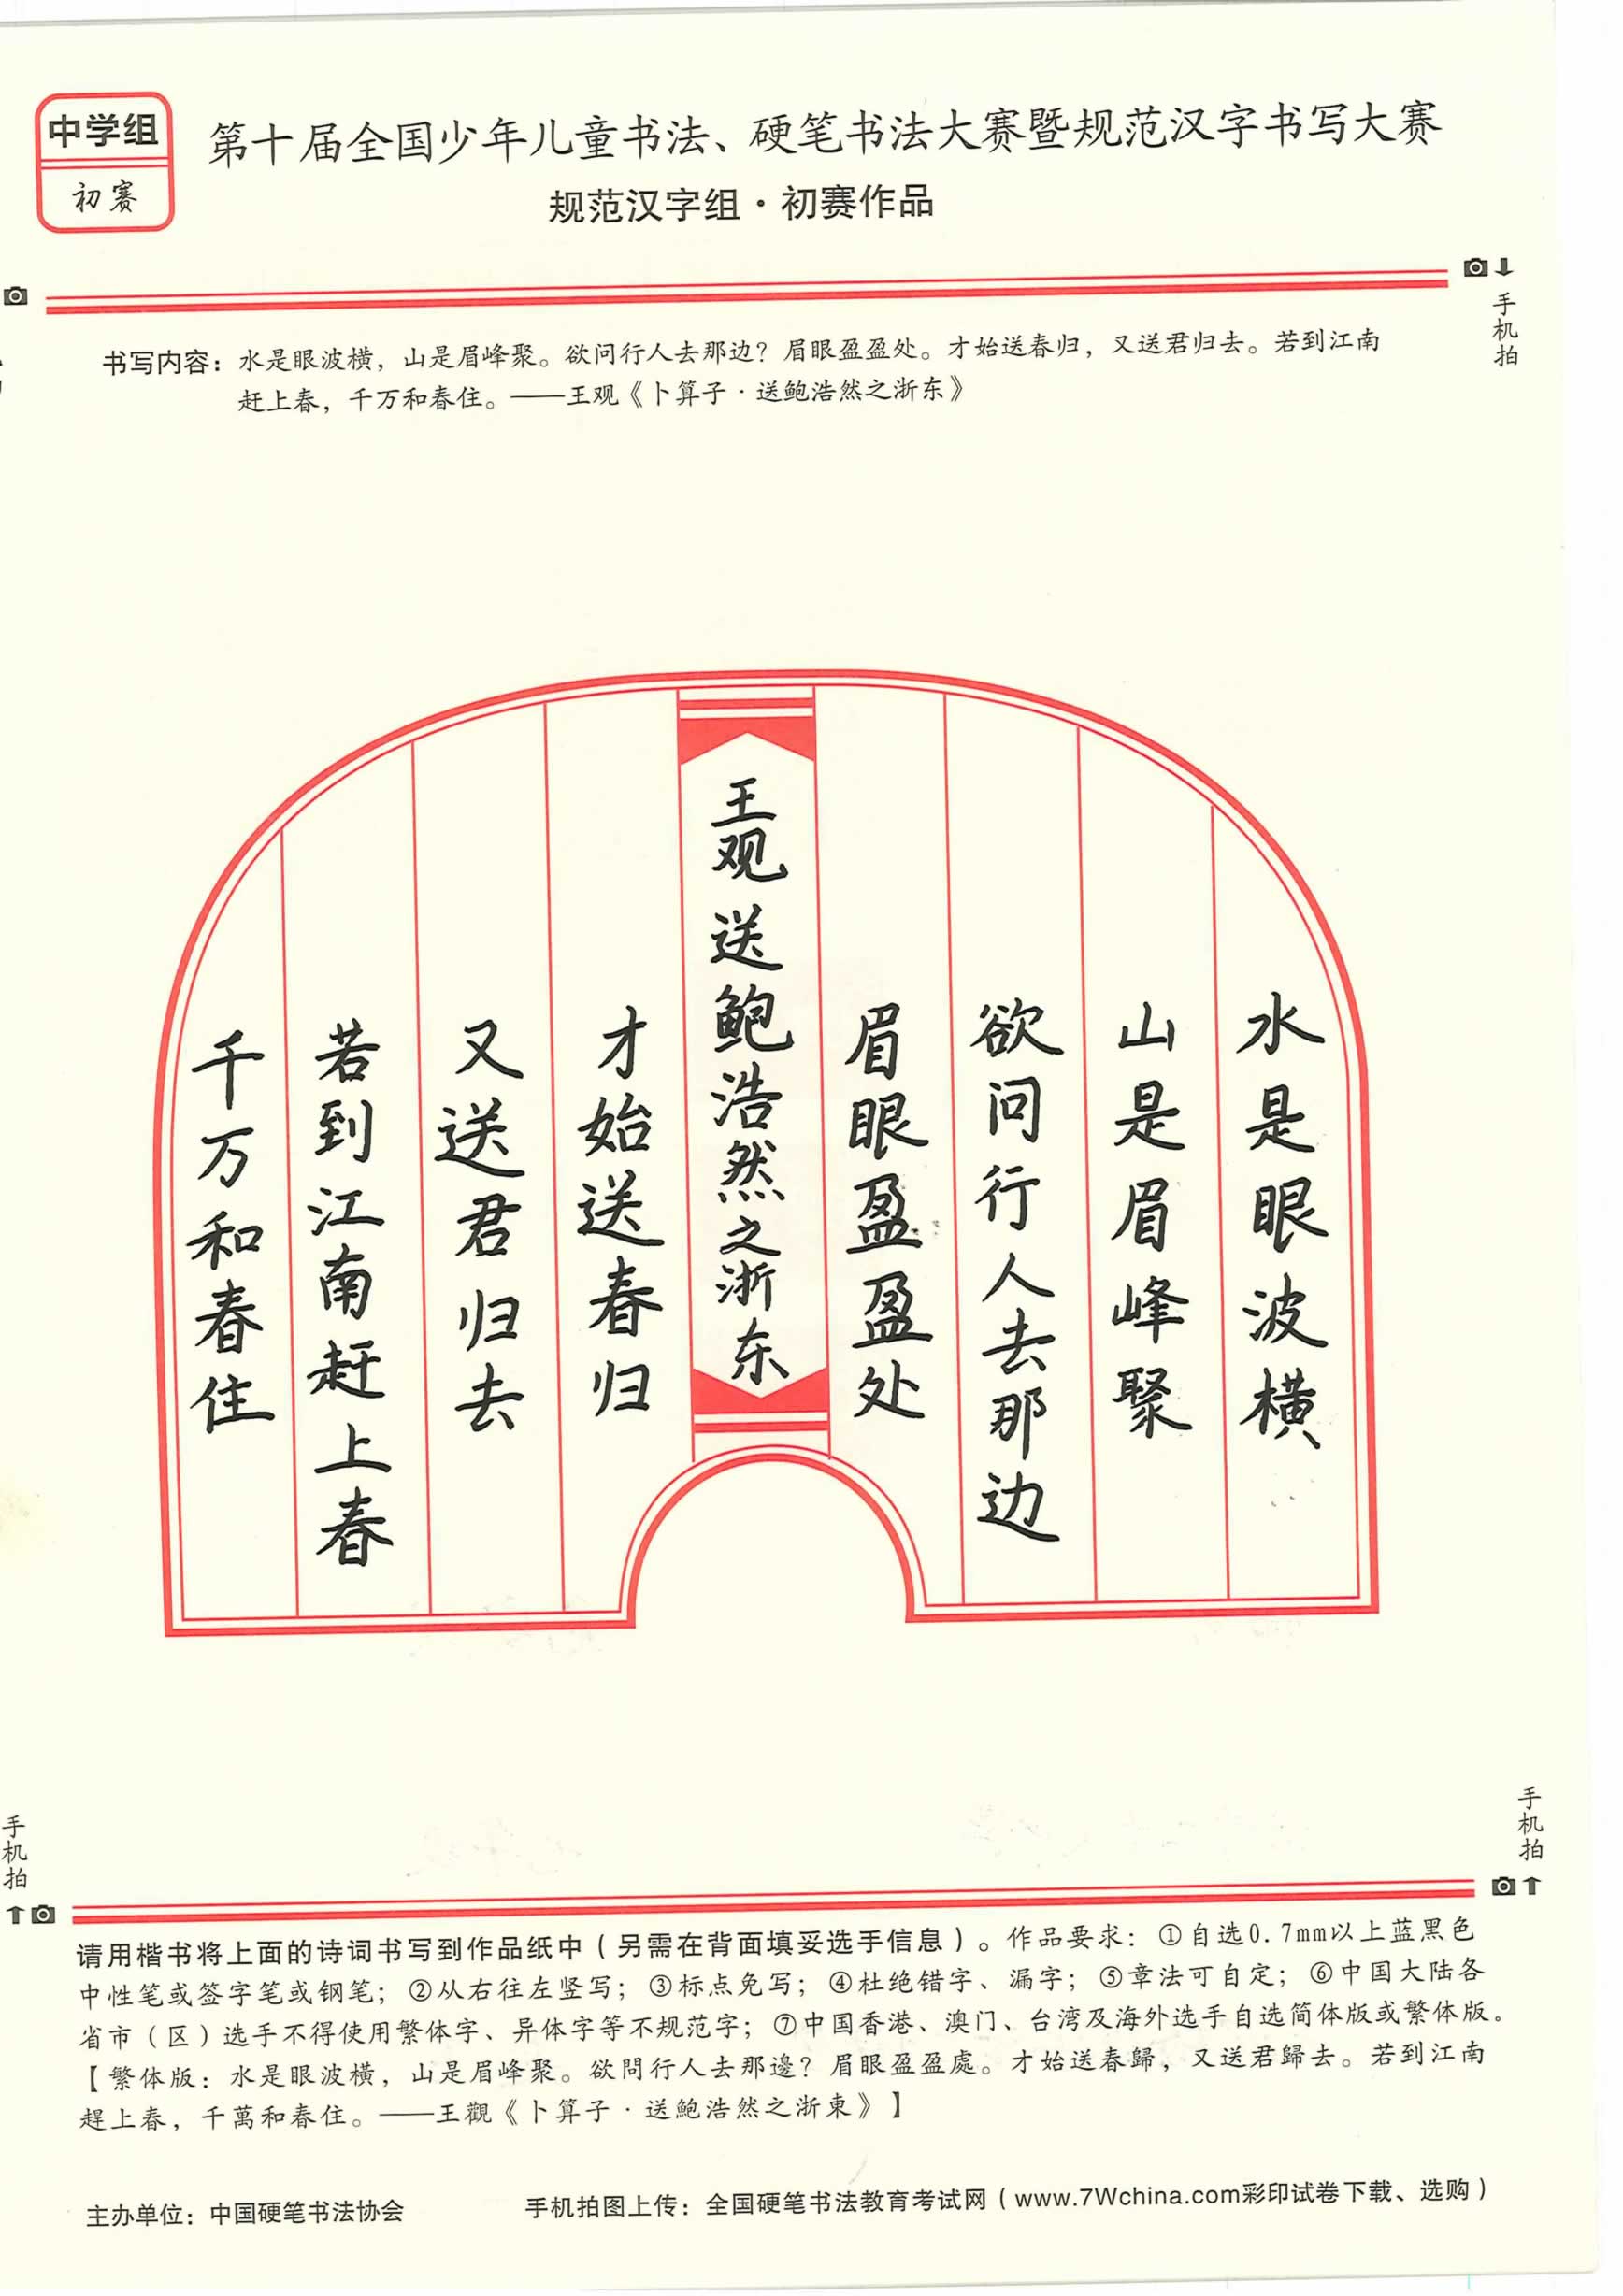 中学组
初赛
第十届全国少年儿童书法、硬笔书法大赛暨规范汉字书写大赛
规范汉字组·初赛作品
手机拍
书写内容：水是眼波横，山是眉峰聚。欲问行人去那边？眉眼盈盈处。才始送春归，又送君归去。若到江南
赶上春，千万和春住。——王观《卜算子·送鲍浩然之浙东》
水是眼波横
山是眉峰聚
欲问行人去那边
眉眼盈盈处
王观送鲍浩然之浙东
才始送春归
又送君归去
若到江南赶上春
千万和春住
手机拍
手机拍
请用楷书将上面的诗词书写到作品纸中（另需在背面填妥选手信息）。作品要求：①自选0.7mm以上蓝黑色
中性笔或签字笔或钢笔；②从右往左竖写；③标点免写；④杜绝错字、漏字；⑤章法可自定；⑥中国大陆各
省市（区）选手不得使用繁体字、异体字等不规范字；⑦中国香港、澳门、台湾及海外选手自选简体版或繁体版。
【繁体版：水是眼波横，山是眉峰聚。欲問行人去那邊？眉眼盈盈處。才始送春歸，又送君歸去。若到江南
趕上春，千萬和春住。——王觀《卜算子·送鮑浩然之浙東》】
主办单位：中国硬笔书法协会
手机拍图上传：全国硬笔书法教育考试网（www.7Wchina.com彩印试卷下载、选购）